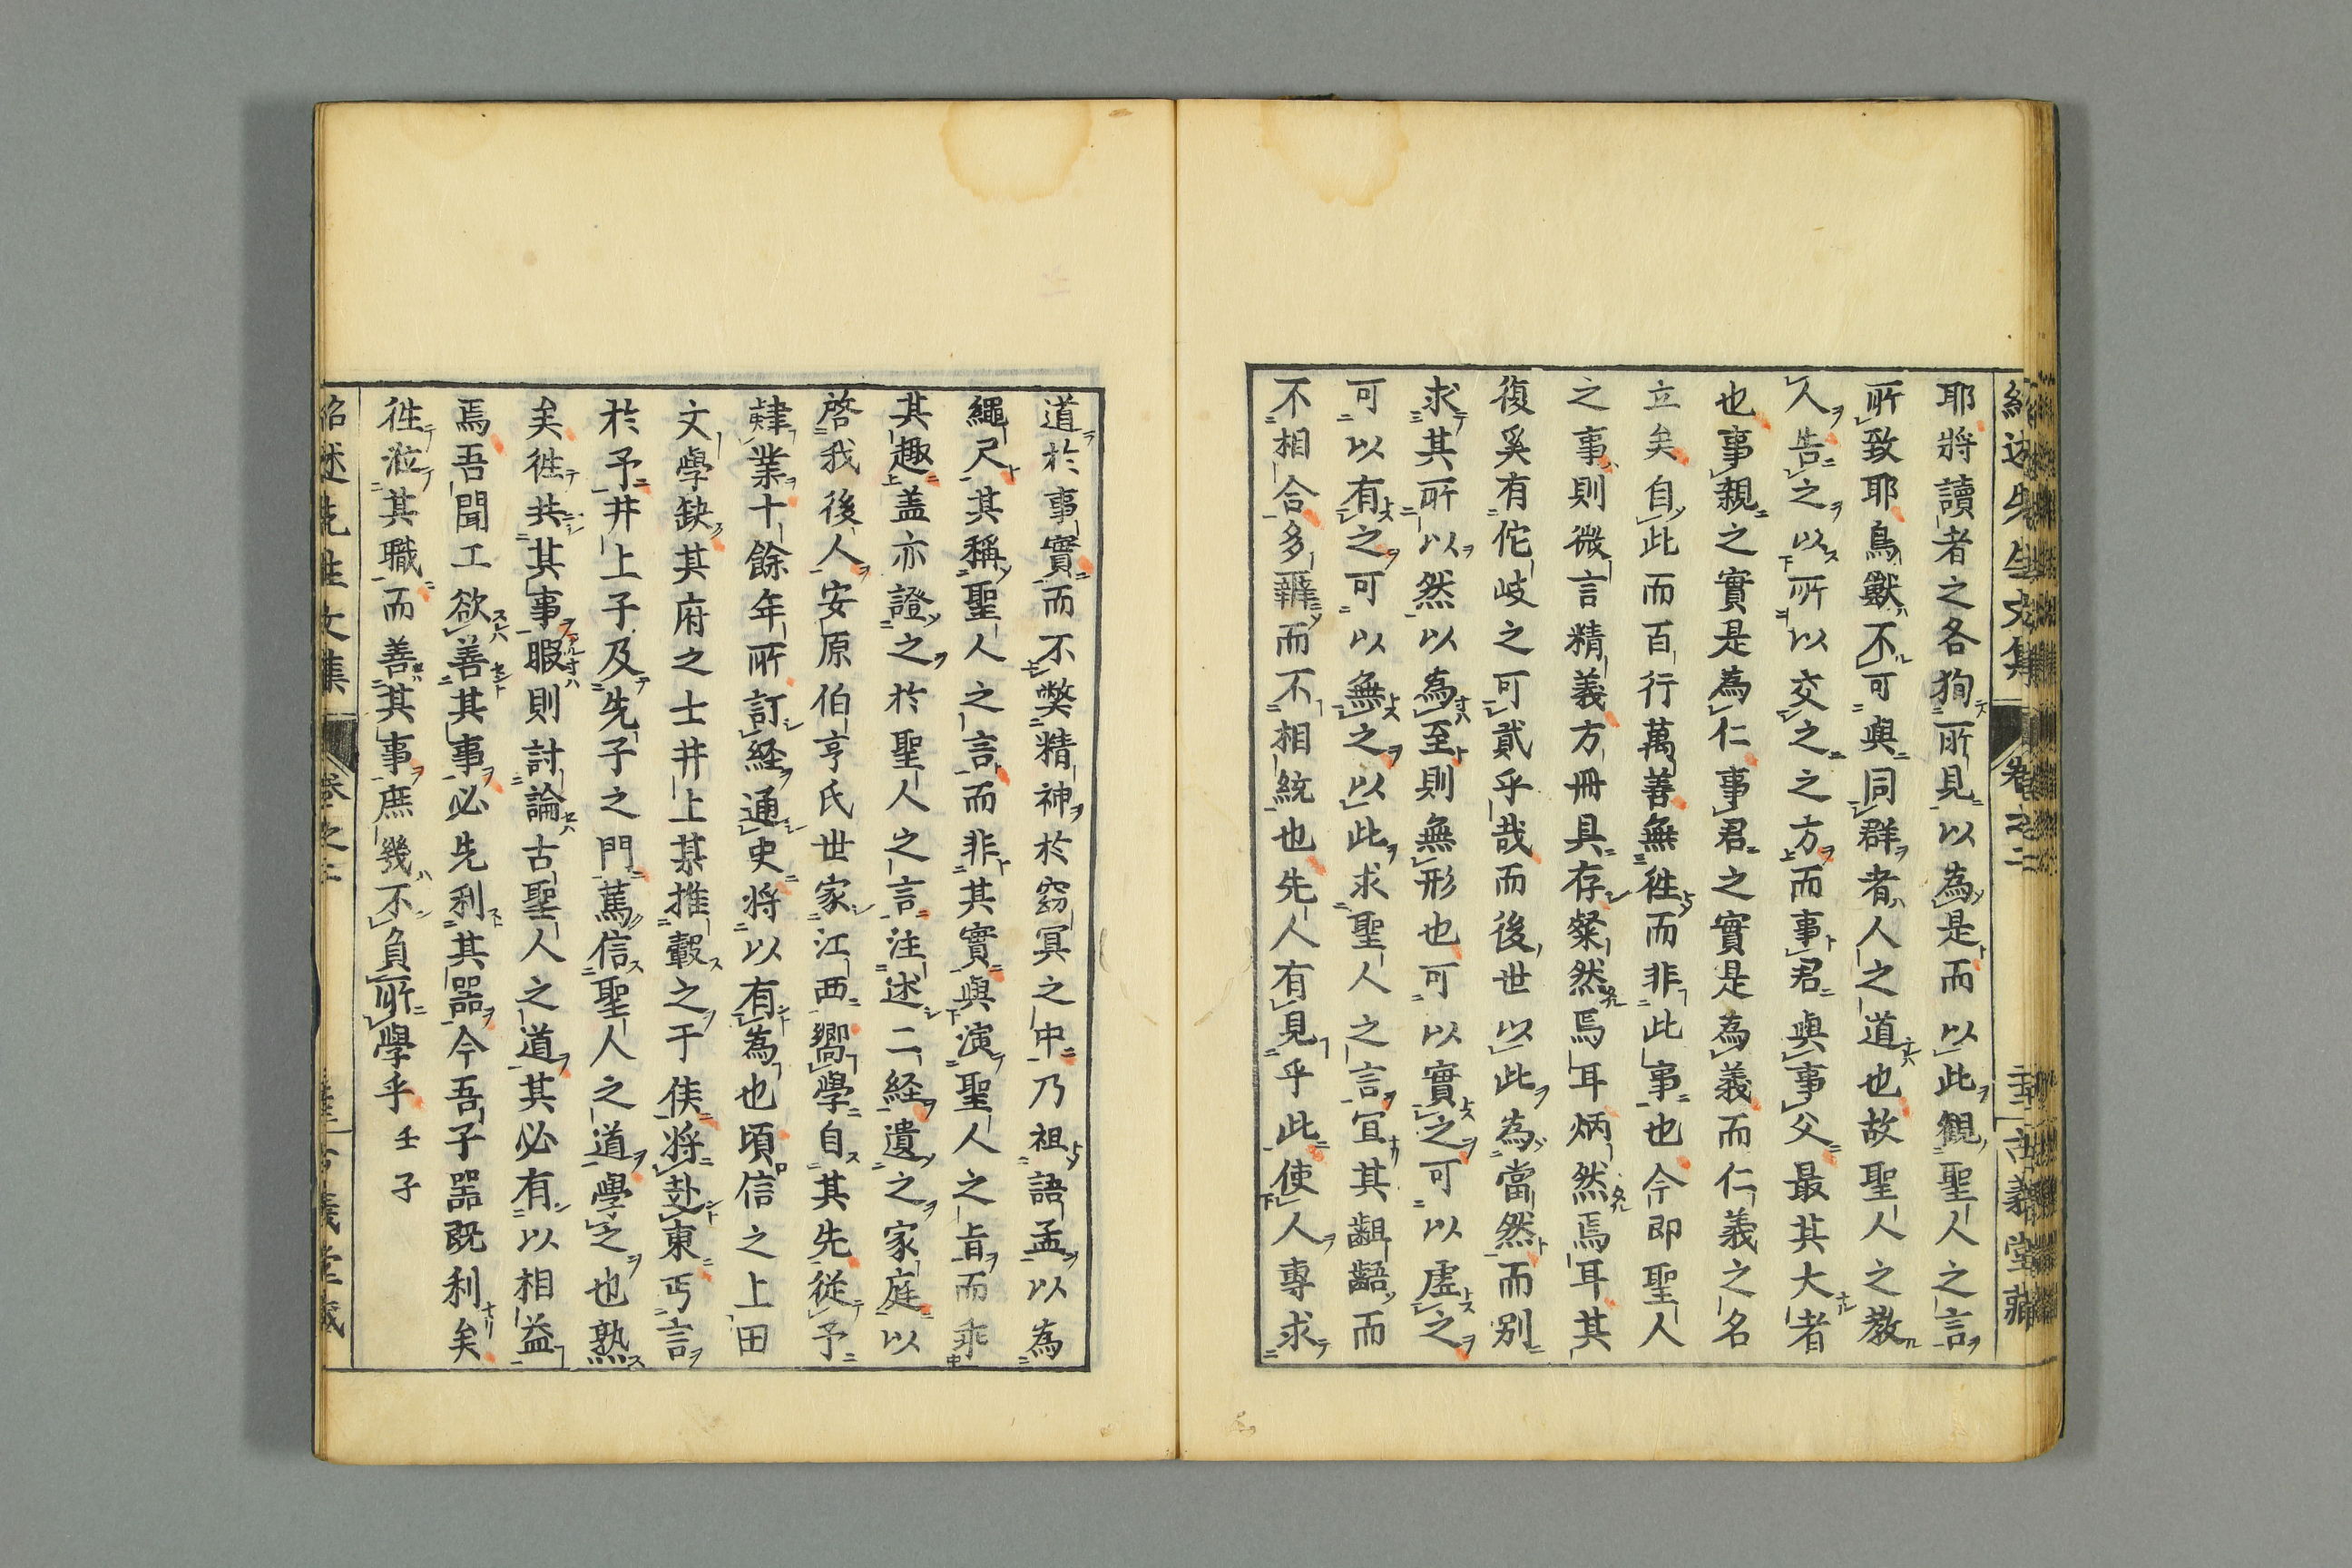 紹述先生文集 卷之二 古義堂藏
耶將讀者之各狥所見以為是而以此觀聖人之言
所致耶鳥獸不可與同群者人之道也故聖人之教
人告之以所以交之之方而事君與事父最其大者
也事親之實是為仁事君之實是為義而仁義之名
立矣自此而百行萬善無徃而非此事也今即聖人
之事則微言精義方冊具存粲然焉耳炳然焉耳其
復奚有佗岐之可貳乎哉而後世以此為當然而別
求其所以然以為至則無形也可以實之可以虛之
可以有之可以無之以此求聖人之言宜其齟齬而
不相合多聱而不相統也先人有見乎此使人專求
道於事實而不弊精神於窈冥之中乃祖語孟以為
繩尺其稱聖人之言而非其實與演聖人之旨而乖
其趣盖亦證之於聖人之言注述二経遺之家庭以
啓我後人安原伯亨氏世家江西嚮學自其先從予
肄業十餘年所訂経通史將以有為也頃信之上田
文學缺其府之士井上某推轂之于侯將赴東丐言
於予井上子及先子之門篤信聖人之道學之也熟
矣徃共其事暇則討論古聖人之道其必有以相益
焉吾聞工欲善其事必先利其器今吾子器既利矣
徃涖其職而善其事庶幾不負所學乎 壬子
紹述先生文集 卷之二 古義堂藏